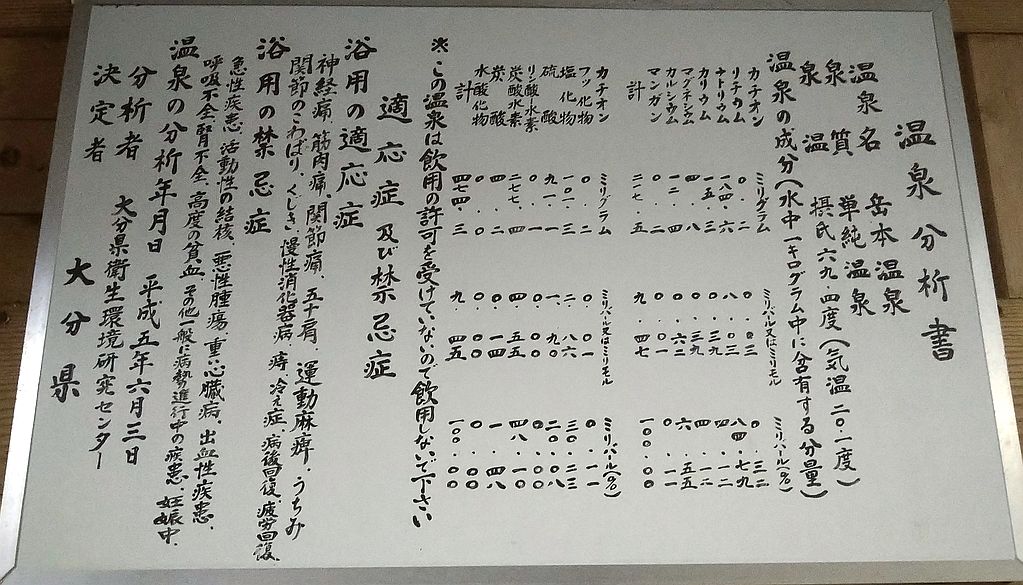 温泉分析書
温泉名　岳本温泉
泉質　単純温泉
泉温　摂氏六九.四度（気温二〇.一度）
温泉の成分（水中一キログラム中に含有する分量）
カチオン　ミリグラム　ミリバル又はミリモル　ミリバル(%)
リチウム　〇.二　〇.〇三　〇.三二
ナトリウム　一八四.六　八.〇三　八四.七九
カリウム　一五.三　〇.三九　四.一二
マグネシウム　四.八　〇.三九　四.一二
カルシウム　一二.四　〇.六二　六.五五
マンガン　〇.二　〇.〇一　〇.一一
計　二一七.五　九.四七　一〇〇.〇〇
カチオン　ミリグラム　ミリバル又はミリモル　ミリバル(%)
フッ化物　〇.二　〇.〇一　〇.一一
塩化物　一〇一.三　二.八六　三〇.二三
硫酸　九一.一　一.九〇　二〇.〇八
リン酸水素　〇.一　〇.〇〇　〇.〇〇
炭酸水素　二七七.四　四.五五　四八.一〇
炭酸　四.二　〇.一四　一.四八
水酸化物　〇.〇　〇.〇〇　〇.〇〇
計　四七四.三　九.四五　一〇〇.〇〇
※この温泉は飲用の許可を受けていないので飲用しないで下さい
適応症及び禁忌症
浴用の適応症
神経痛、筋肉痛、関節痛、五十肩、運動麻痺・うちみ
関節のこわばり、くじき、慢性消化器病、痔、冷え症、病後回復、疲労回復、
浴用の禁忌症
急性疾患、活動性の結核、悪性腫瘍、重い心臓病、出血性疾患、
呼吸不全、腎不全、高度の貧血、その他一般に病勢進行中の疾患、妊娠中、
温泉の分析年月日　平成五年六月三日
分析者　大分県衛生環境研究センター
決定者　大分県